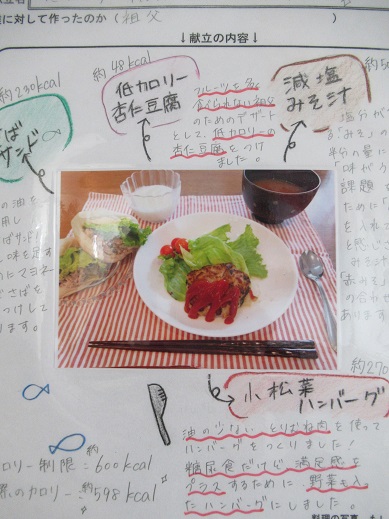 に対して作ったのか（祖父
）
↓献立の内容↓
約230kcal
約48kcal
ば
サンド
低カロリー
杏仁豆腐
減塩
みそ汁
フルーツを多く
食べられない祖父
のためのデザート
として、低カロリーの
杏仁豆腐をつけ
ました。
塩分が
半分の量に
「味が
課題
ために「
を入れて
と感じ
みそ汁
「赤みそ
の合わ
あります
の油を
用し
ばサンド
味を足す
にマヨネー
でさばを
つけして
ります。
約270
小松菜
ハンバーグ
油の少ない、とりむね肉を使って
ハンバーグをつくりました！
糖尿食だけど、満足感を
プラスするために、野菜も入っ
たハンバーグにしました。
ロリー制限＝約600kcal
際のカロリー 約598kcal
料理の写真